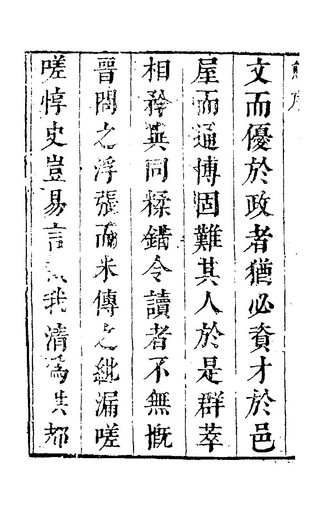 序
文而優於政者猶必資才於邑
屋而通博固難其人於是群萃
相矜異同糅錯令讀者不無慨
晉問之浮張而米傳之紕漏嗟
嗟惇史豈易言我清爲其都